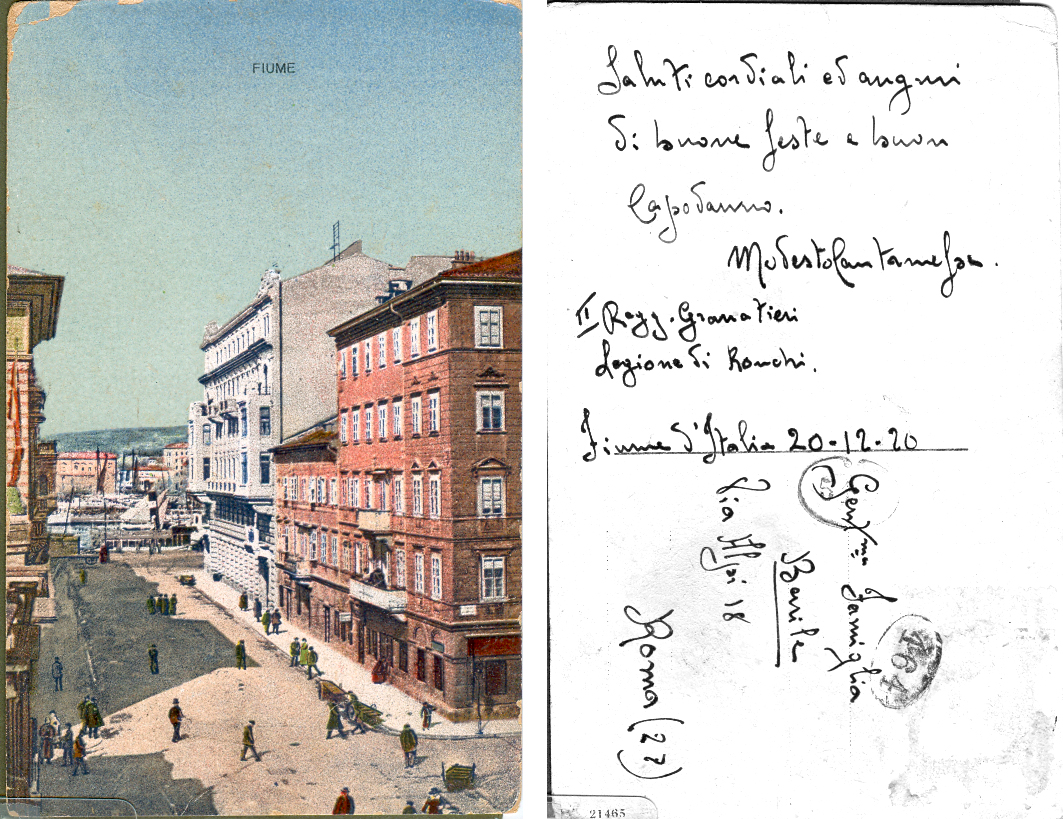 FIUME
Saluti cordiali ed auguri
di buone feste e buon
Capodanno.
Modesto Cantamessa.
II Regg. Granatieri
Legione di Ronchi.
Fiume d'Italia 20-12-20
Gent.ma Famiglia
Barile
Via 18
Roma (27)
264
21465